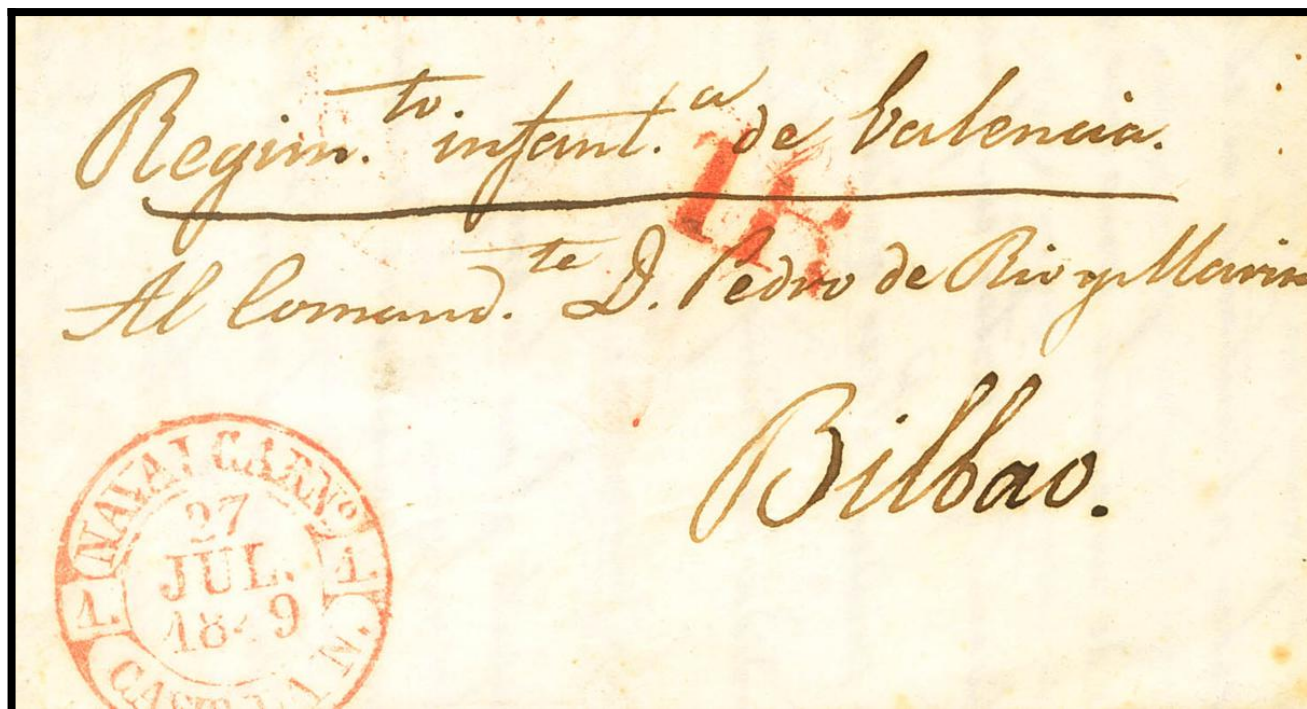 Regim.to infant.a de Valencia.
1R
Al Comand.te D. Pedro de Rio y Marin
Bilbao.
NAVALCARNº
27
JUL.
1849
1 1
CAST. LA N.